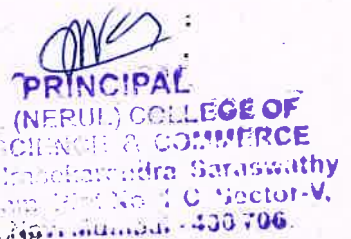 PRINCIPAL
(NERUL) COLLEGE OF
SCIENCE & COMMERCE
Saraswathy
No. 1 C Sector-V,
Mumbai - 400 706.